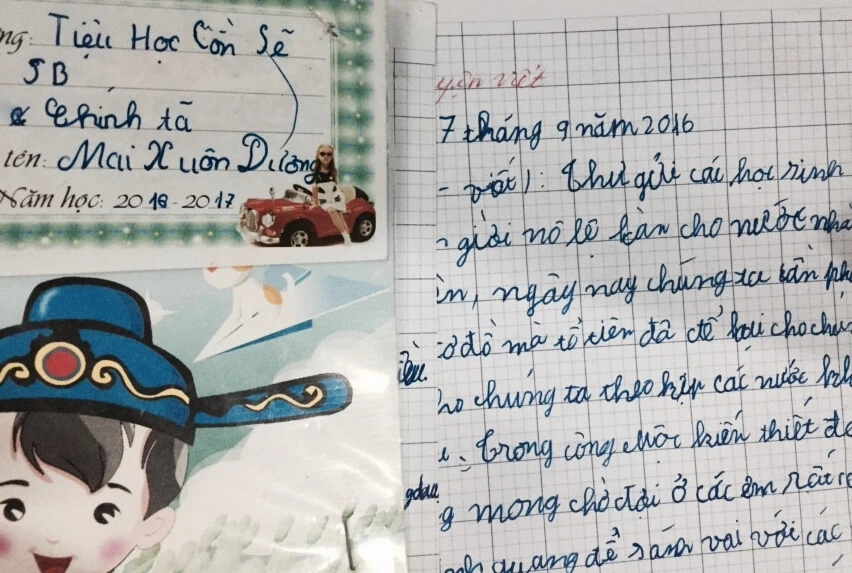 ng: Tiểu Học Cồn Sẽ
5B
Chính tã
tên: Mai Xuân Dương
Năm học: 2016-2017
yện viết
7 tháng 9 năm 2016
- viết): Thư gửi các học sinh
giời nô lệ làm cho nước nhà
ngày nay chúng ta cần ph
đồ mà tổ tiên đã để lại cho chún
ho chúng ta theo kịp các nước kh
Trong công cuộc kiến thiết đó
g mong chờ đợi ở các em rất
quang để sánh vai với các